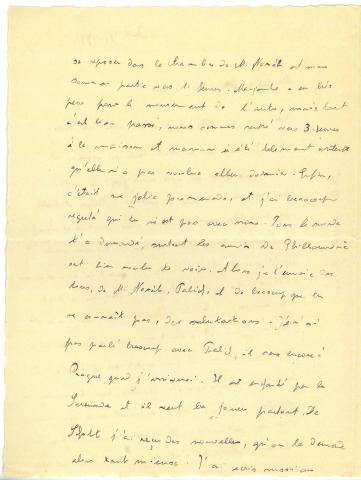 se reposer dans la chambre de M. Novák et nous
sommes partis vers 1 heures. Marjánka a eu très
peur pour le mouvement de l'auto, mais tout
s'est bien passé, nous sommes rentré vers 3 heures
à la maison et maman a été tellement
qu'elle n'a pas voulue aller dormir. Enfin,
c'était une jolie promenade, et j'ai beaucoup
regretté qui tu n'est pas avec nous. Tout le monde
t'a demandé, surtout les amis de Philharmonie
ont bien voulu te voir. Alors je t'envoie des
tous, de M. Novák, Palich, et de beaucoup que tu
ne connaît pas, des salutations. J'ai
pas parlé beaucoup avec Palich, il sera encore à
Prague quand j'arriverai. Il est enchanté par la
Serenade et il veut la jouer partout. De
j'ai reçu des nouvelles, qu'on la demande
alors J'ai aussi